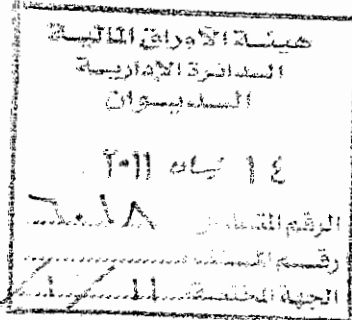 هيئة الأوراق المالية
الدائرة الإدارية
الديوان
١٤ نيسان ٢٠١١
الرقم المتسلسل ٦٠١٨
رقم الملف
الجهة المختصة ١١/١/١